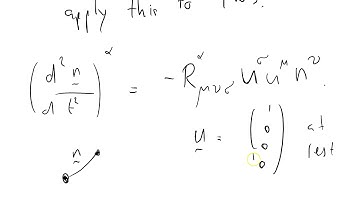 apply this to
(d² n / d t²)^α = - R^α_μνσ u^σ u^μ n^ν.
u = (1 0 0 0) at rest
n